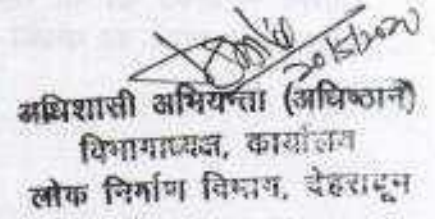 20/5/2020
अधिशासी अभियन्ता (अधिष्ठान)
विभागाध्यक्ष, कार्यालय
लोक निर्माण विभाग, देहरादून